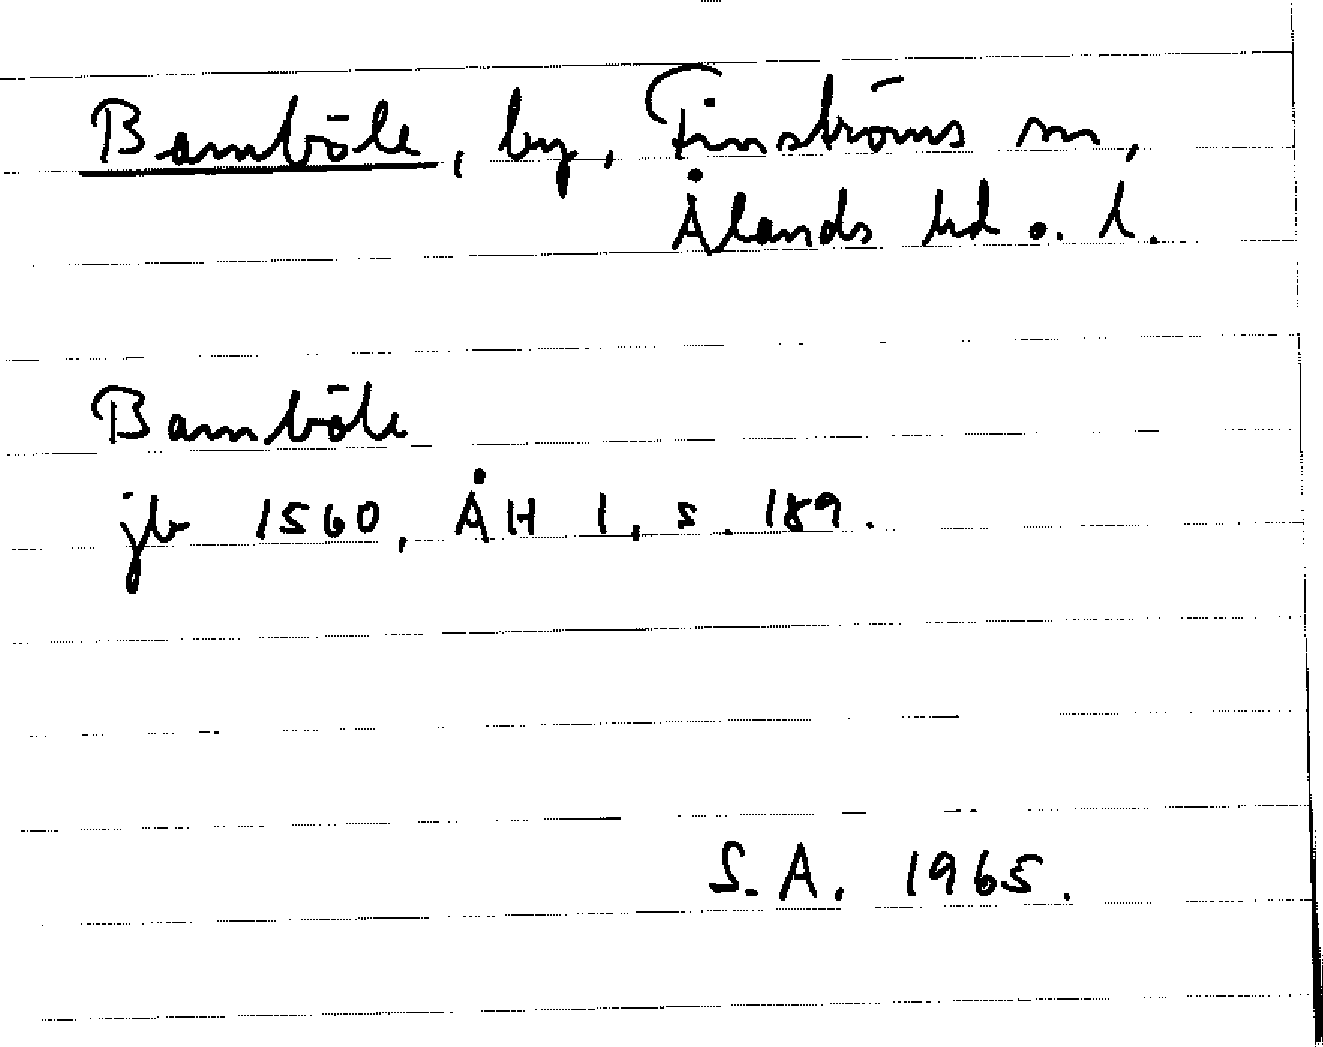 Bamböle, by, Finströms sn,
Ålands hd o. l.
Bamböle
jb 1560, ÅH 1, s. 189.
S. A. 1965.